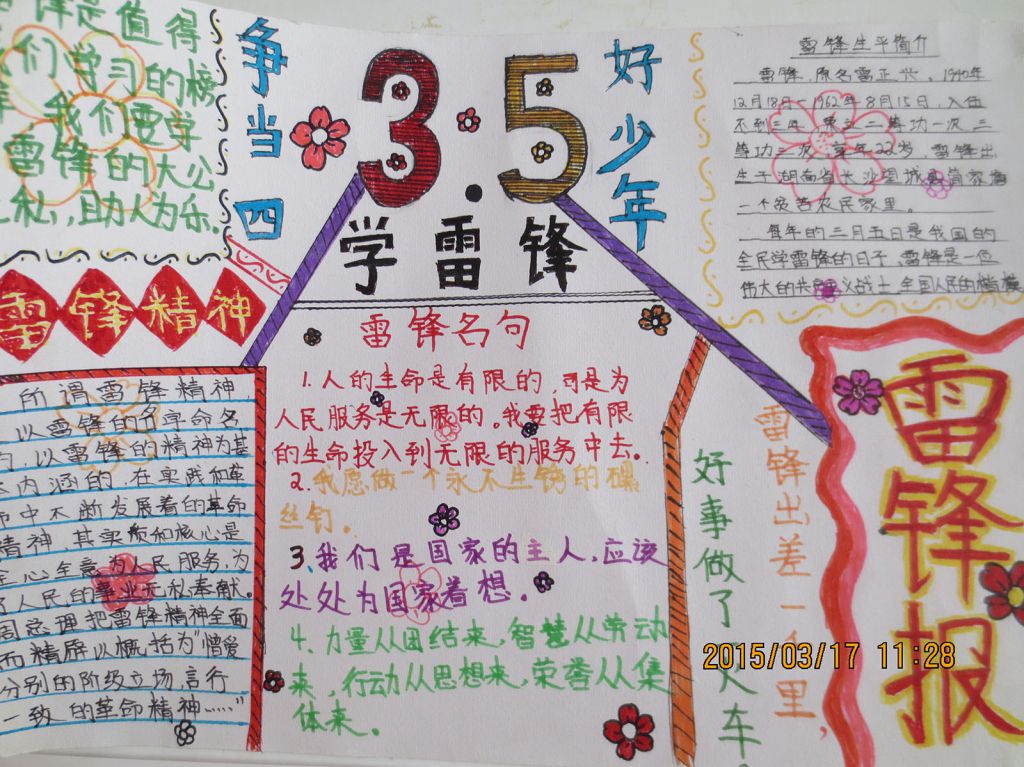 锋是值得
我们学习的榜
样 我们要学
雷锋的大公
无私,助人为乐。
争当四
好少年
3.5
学雷锋
雷锋生平简介
雷锋,原名雷正兴,1940年
12月18日-1962年8月15日,入伍
不到三年 荣立二等功一次 三
等功二次,享年22岁,雷锋出
生于湖南省长沙望城县简家塘
一个贫苦农民家里。
每年的三月五日是我国的
全民学雷锋的日子,雷锋是一位
伟大的共产主义战士 全国人民的楷模
雷锋精神
所谓雷锋精神
以雷锋的名字命名
以雷锋的精神为基
内涵的,在实践和革
命中不断发展着的革命
精神,其实质和核心是
全心全意为人民服务,为
了人民的事业无私奉献。
周总理把雷锋精神全面
而精辟以概括为“憎爱
分别的阶级立场,言行
一致的革命精神……”
雷锋名句
1.人的生命是有限的,可是为
人民服务是无限的。我要把有限
的生命投入到无限的服务中去。
2.我愿做一个永不生锈的螺
丝钉。
3、我们是国家的主人,应该
处处为国家着想。
4.力量从团结来,智慧从劳动
来,行动从思想来,荣誉从集
体来。
雷锋出差一千里,
好事做了 火车
雷锋报
2015/03/17 11:28